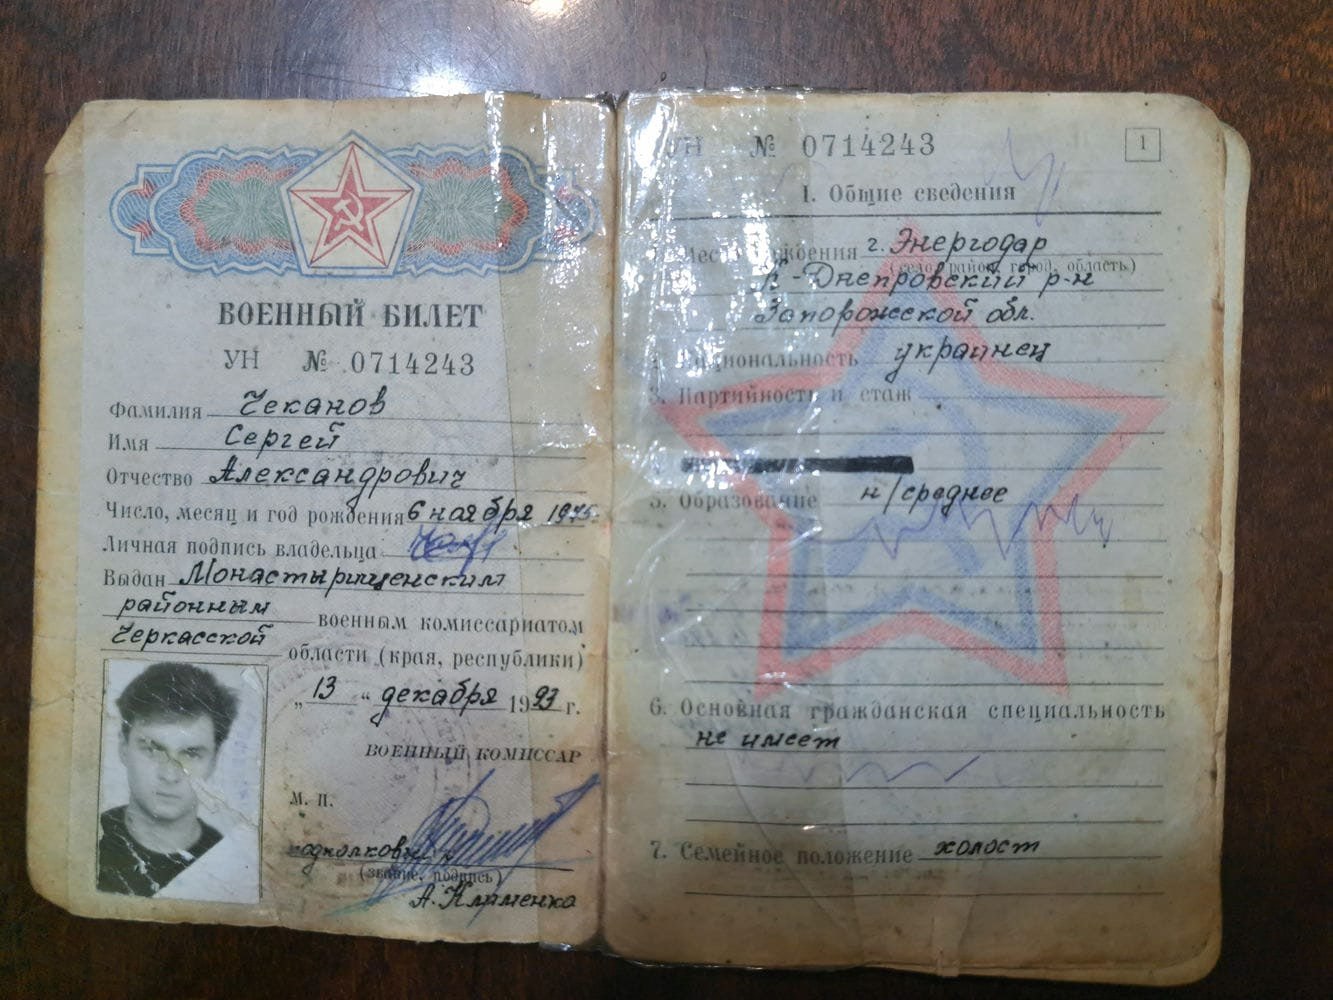 ВОЕННЫЙ БИЛЕТ
УН № 0714243
Фамилия Чеканов
Имя Сергей
Отчество Александрович
Число, месяц и год рождения 6 ноября 1975
Личная подпись владельца
Выдан Монастырищенским
районным военным комиссариатом
Черкасской области (края, республики)
„ 13 " декабря 1993 г.
ВОЕННЫЙ КОМИССАР
М. П.
подполковник
(звание, подпись)
А. Клименко
УН № 0714243
1
I. Общие сведения
Место рождения г. Энергодар
(село, район, город, область)
К-Днепровский р-н
Запорожской обл.
Национальность украинец
3. Партийность и стаж
5. Образование н/среднее
6. Основная гражданская специальность
не имеет
7. Семейное положение холост